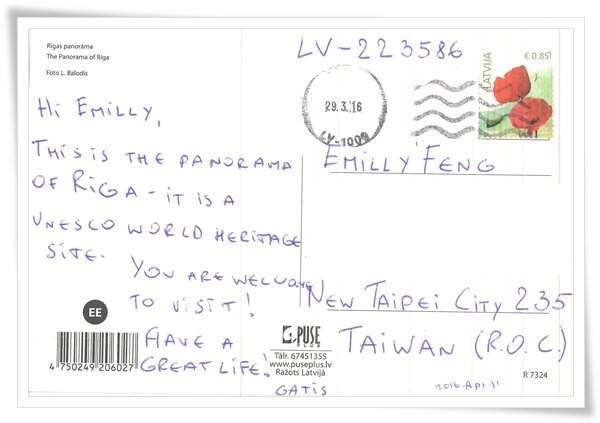 Rīgas panorāma
The Panorama of Riga
Foto L. Balodis
LV-223586
LATVIJA
€ 0.85
29.3.16
LV-1000
HI EMILLY,
THIS IS THE PANORAMA
OF RIGA - IT IS A
UNESCO WORLD HERITAGE
SITE.
YOU ARE WELCOME
TO VISIT!
HAVE A
GREAT LIFE!
GATIS
EMILLY FENG
NEW TAIPEI CITY 235
TAIWAN (R.O.C.)
EE
4 750249 206027
PUSE
PLUS
Tālr. 67451355
www.puseplus.lv
Ražots Latvijā
2016.Apr.11
R 7324